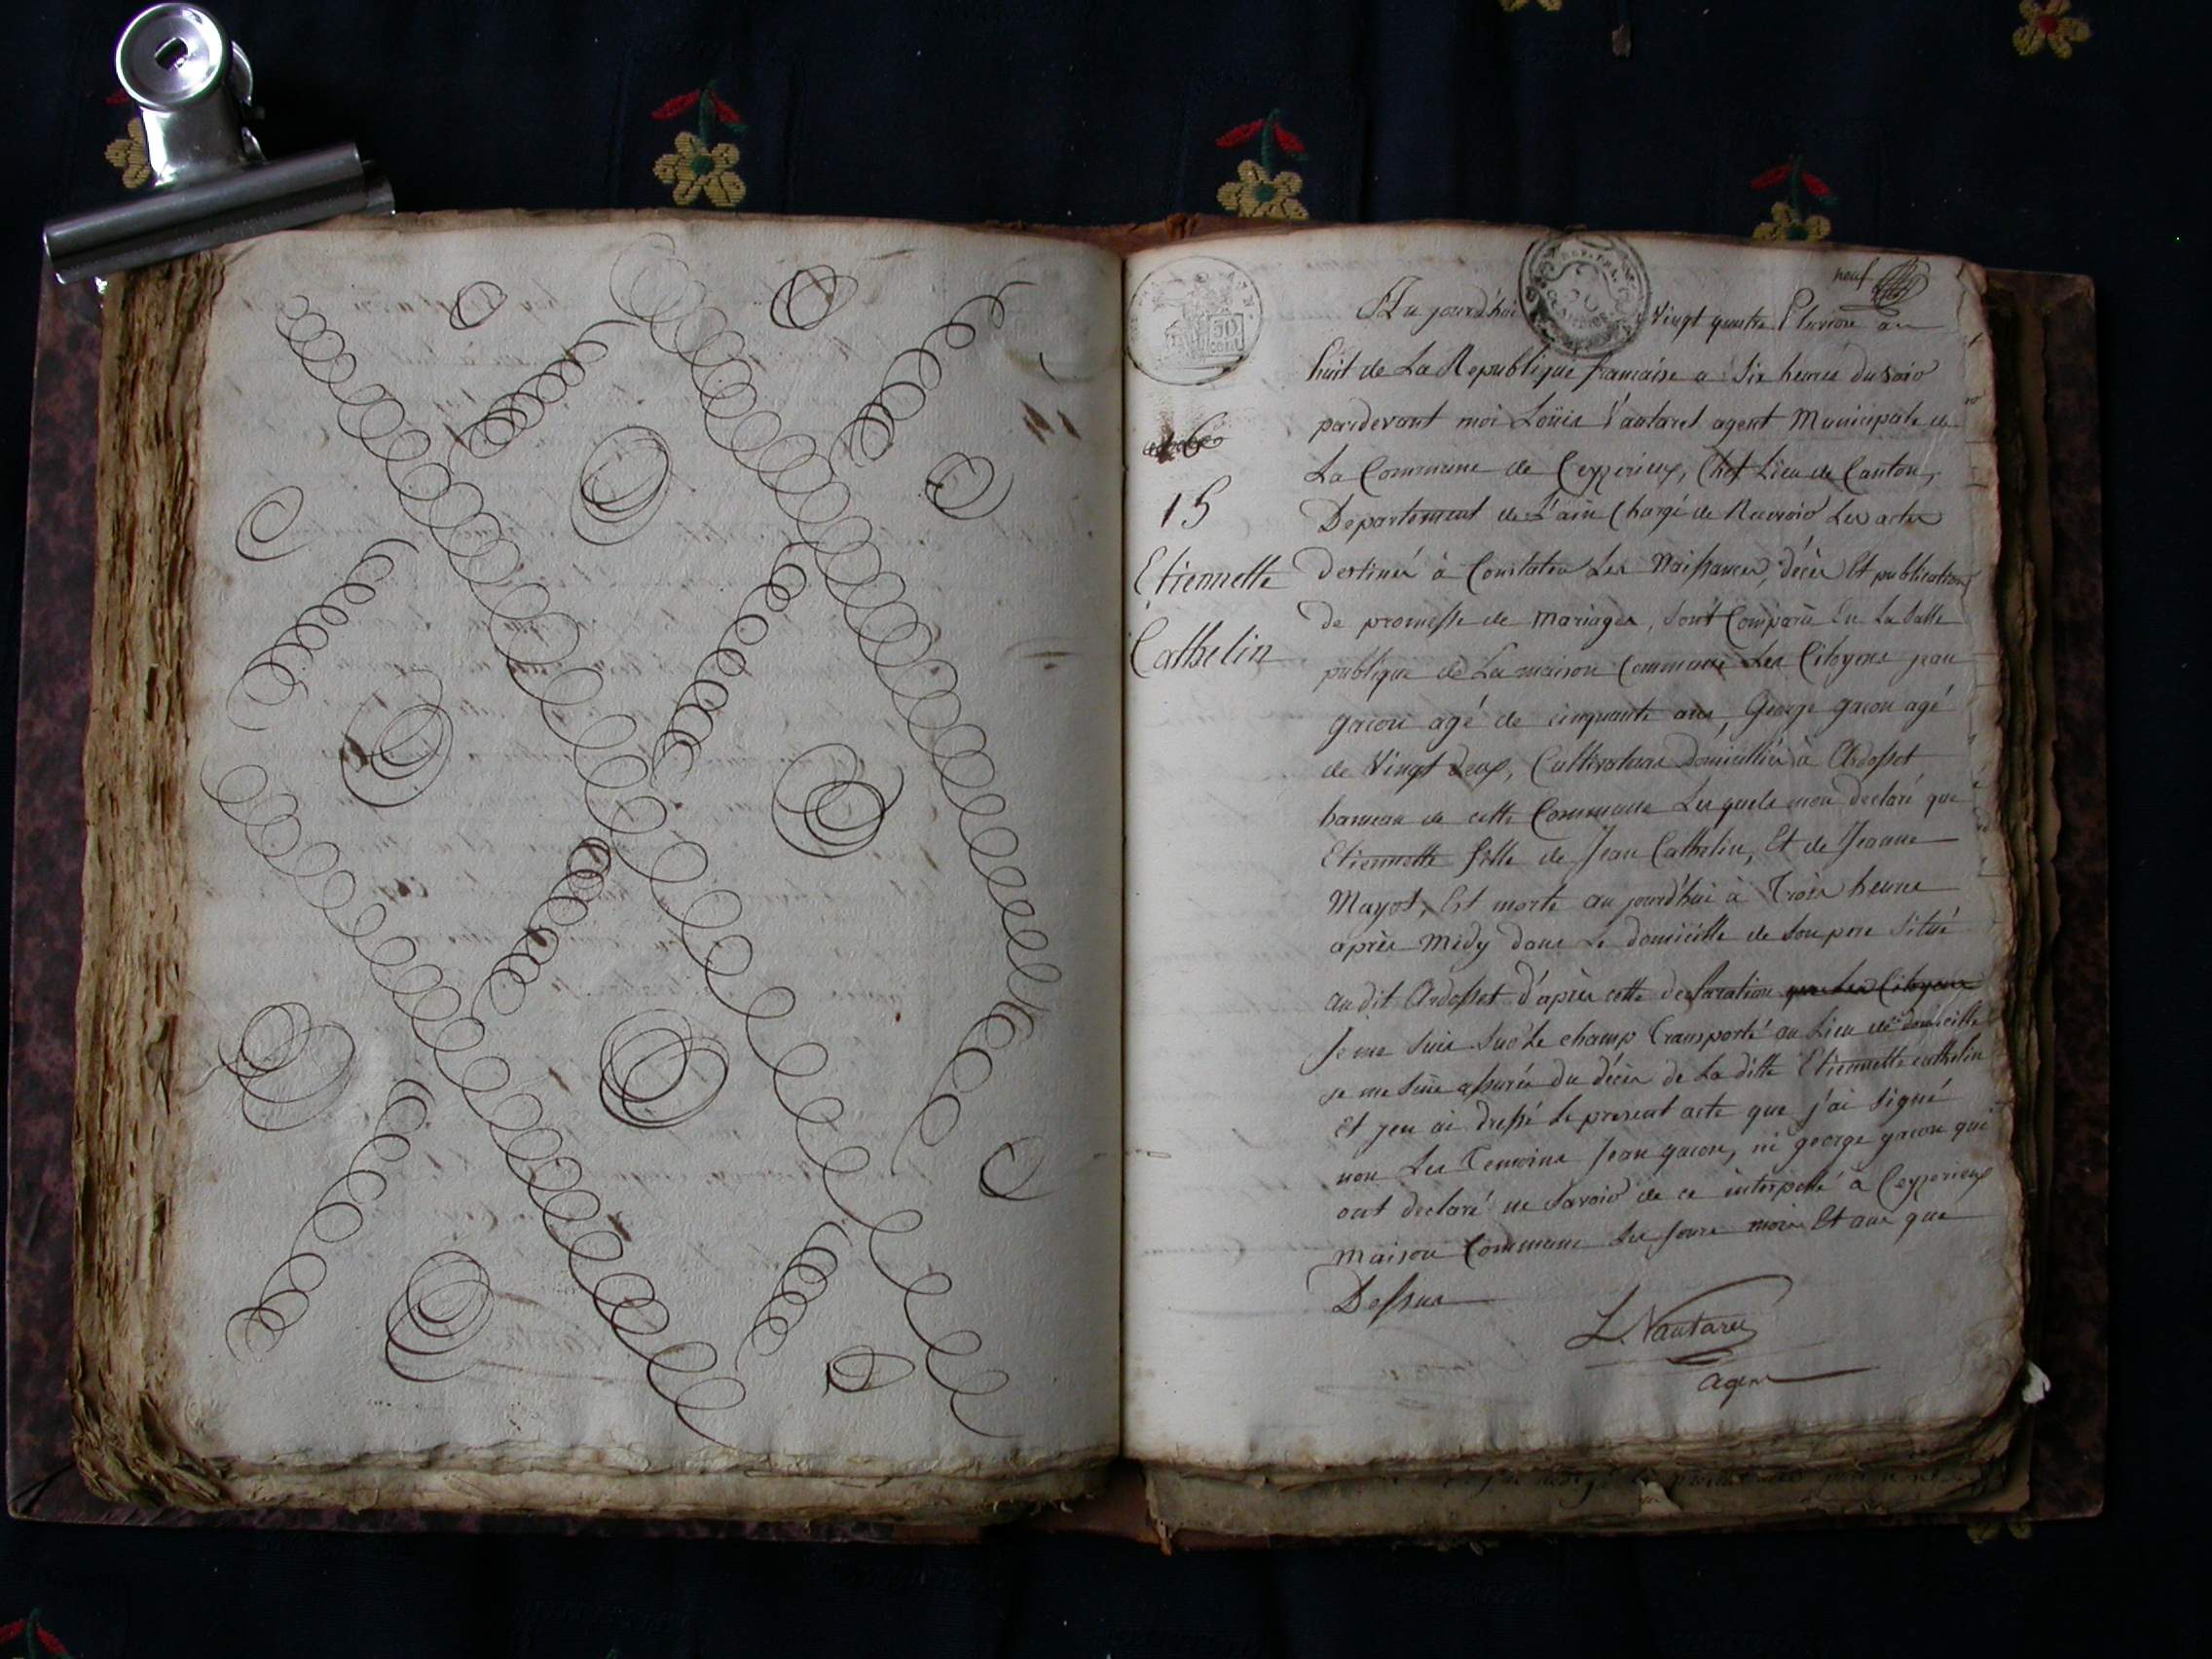 neuf
Au jourd'hui Vingt quatre Pluviose an
huit de La Republique francaise a Six heures du Soir
pardevant moi Loüis Vautaret agent Municipale de
La Commune de Ceyzerieux, Chef Lieu de Canton,
Departement de L'ain Chargé de Recevoir Les actes
destinés à Constater Les Naissances, décès Et publications
de promesse de Mariages, Sont Comparus En La Salle
publique de La maison Commune Les Citoyens jean
gacon agé de cinquante ans, George gacon agé
de Vingt deux, Cultivateurs Domiciliés à Ardosset
hameau de cette Commune Lesquels mon declaré que
Etiennette fille de Jean Cathelin, Et de Jeanne
Mayot, Est morte au jourd'hui à Trois heures
après Midy dans Le domicille de Son pere Situé
au dit Ardosset d'après cette declaration que Les Citoyens
Je me Suis Sur Le champ Transporté au Lieu de domicille
je me Suis assurés du décès de La ditte Etiennette cathelin
Et j'en ai dressé Le present acte que j'ai Signé
non Les Temoins Jean gacon, ni george gacon qui
ont declaré ne Savoir de ce interpellé à Ceyzerieux
Maison Commune Les Jours mois Et an que
Dessus
L. Vautaret
agent
50
cent
15
Etiennette
Cathelin